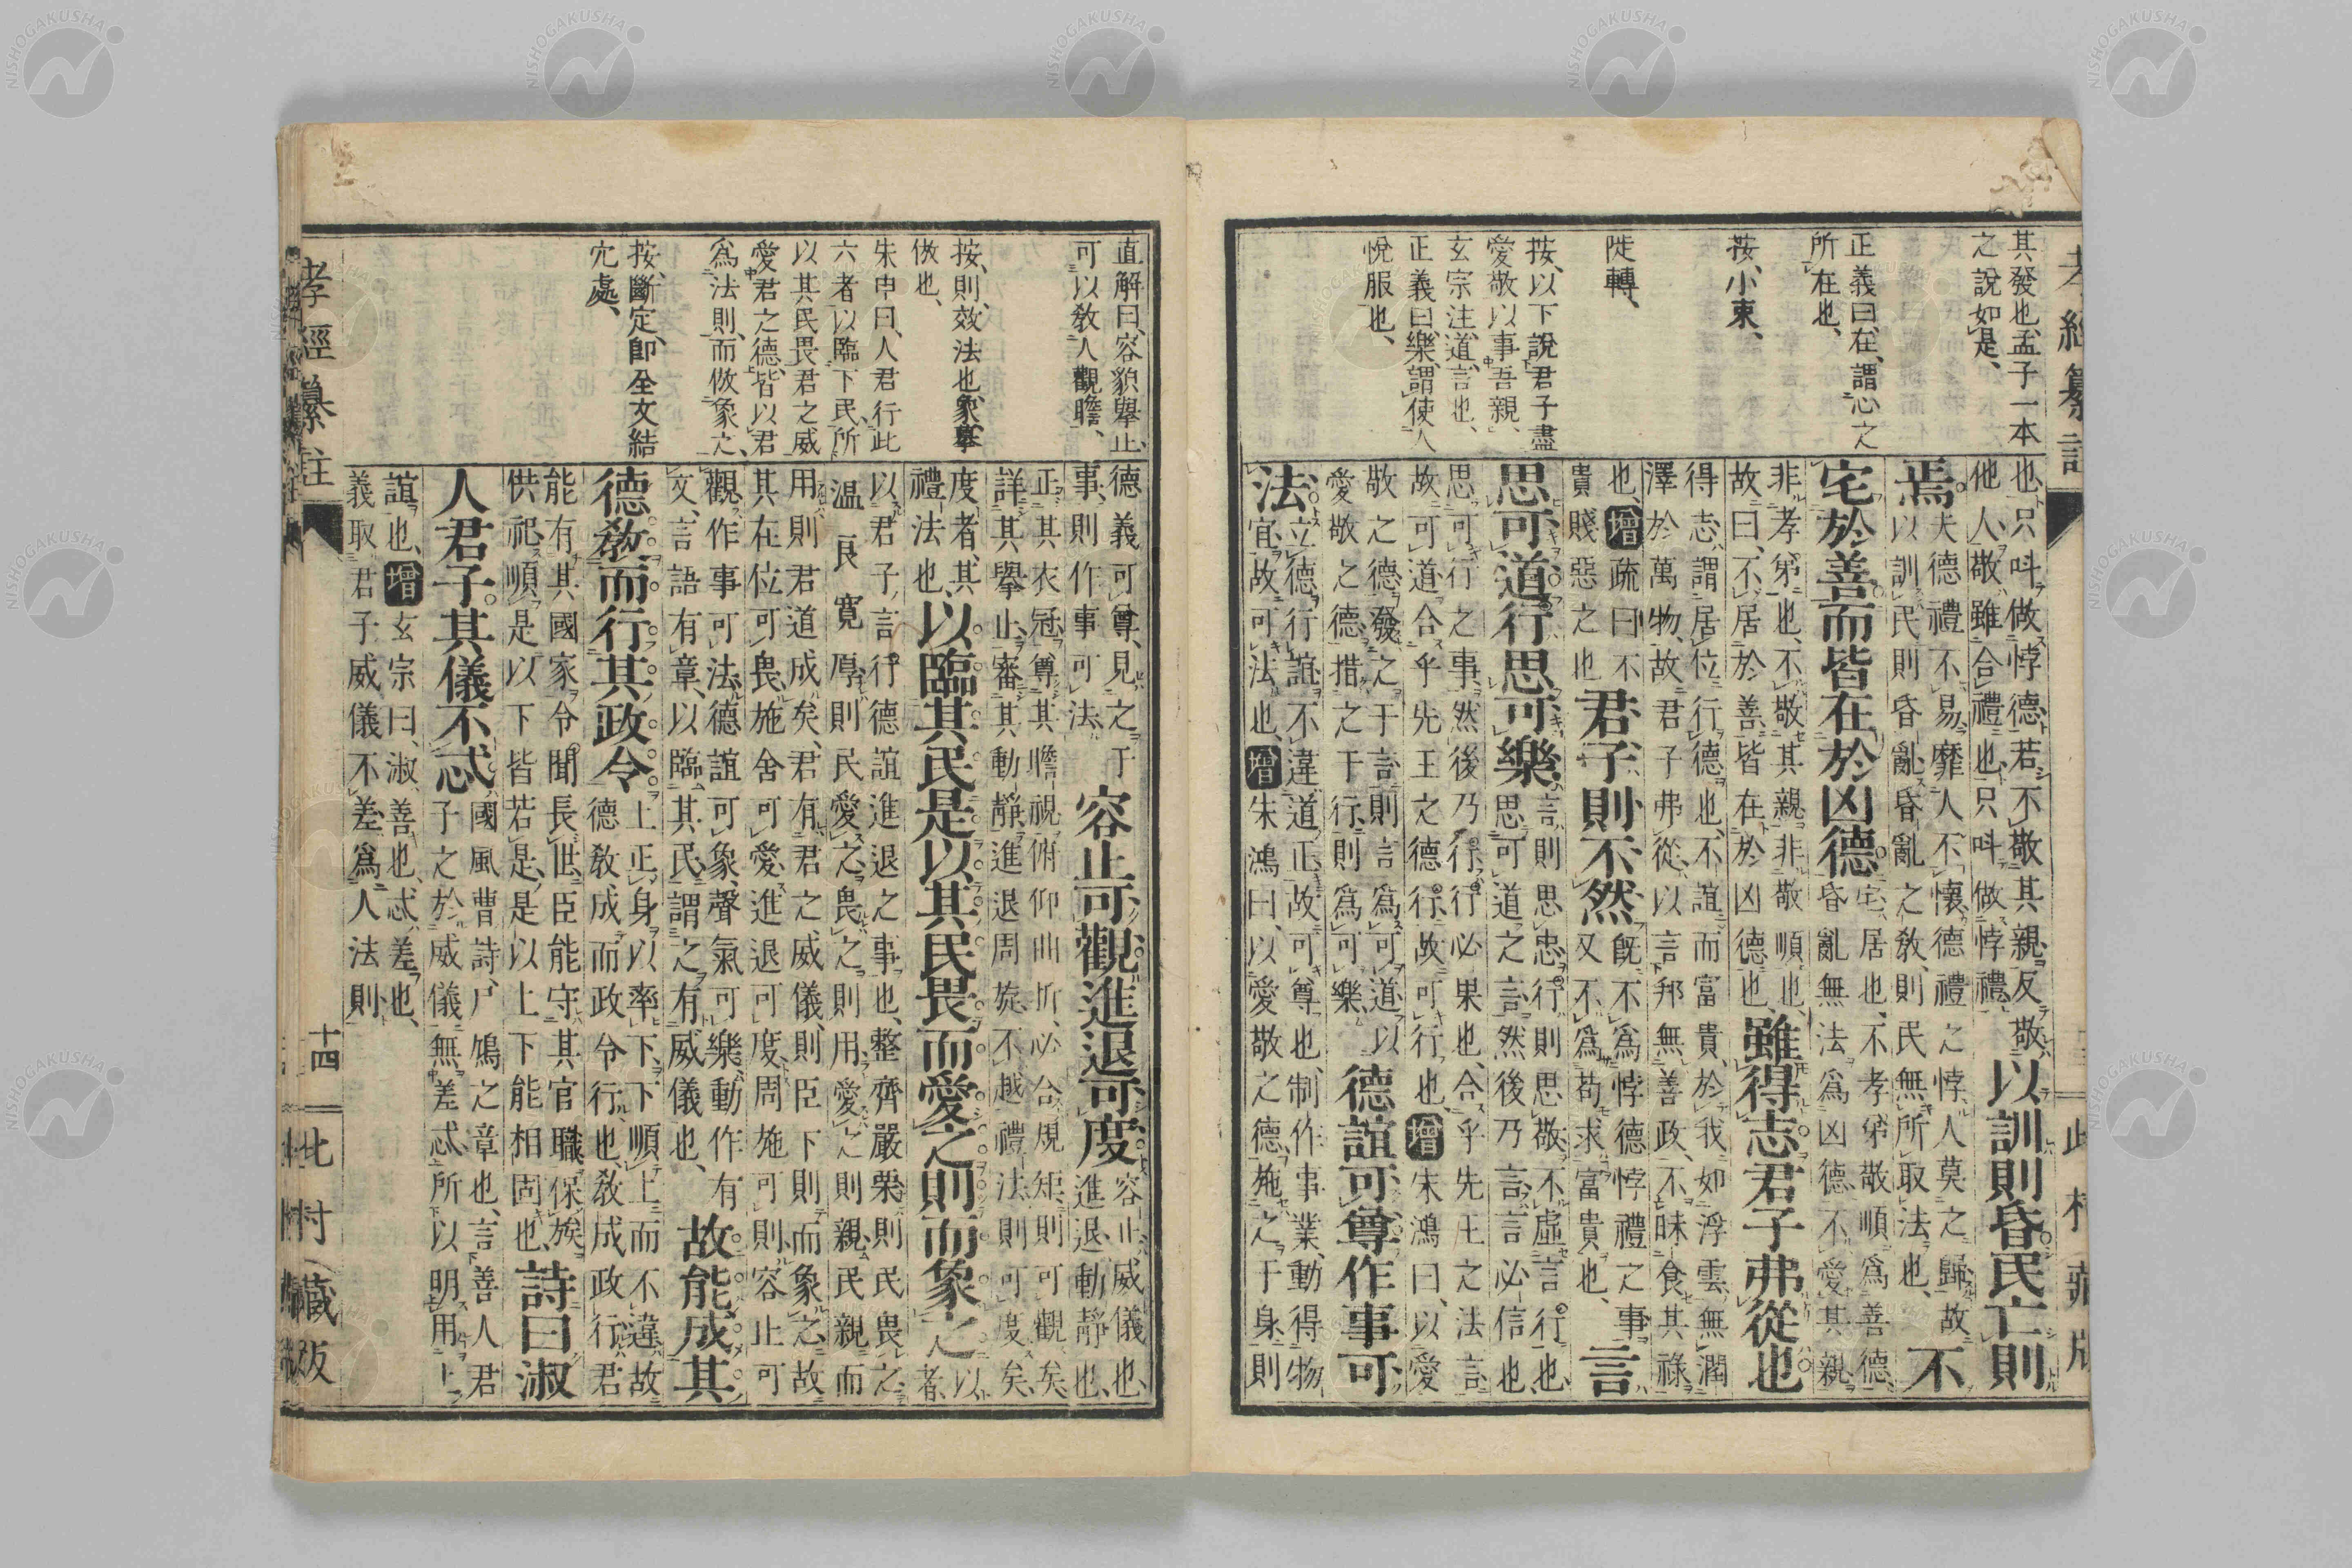 其發也、孟子一本
之說如是、
正義曰、在、謂心之
所在也、
按、小束、
陡轉、
按、以下說君子盡
愛敬以事吾親、
玄宗注、道、言也、
正義曰、樂、謂使人
悅服也、
也、只呌做悖德、若不敬其親、反敬
他人、敬雖合禮也、只呌做悖禮、
以訓則昏民亡則
焉
夫德禮不易、靡人不懷、德禮之悖、人莫之歸、故
以訓民則昏亂、昏亂之敎、則民無所取法也、
不
宅於善而皆在於凶德
宅、居也、不孝弟敬順爲善德、
昏亂無法爲凶德、不愛其親
非孝弟也、不敬其親、非敬順也、
故曰、不居於善、皆在於凶德也、
雖得志君子弗從也
得志、謂居位行德也、不誼而富貴、於我如浮雲、無潤
澤於萬物、故君子弗從、以言邦無善政、不昧食其祿
也、增疏曰不
貴賤惡之也
君子則不然
旣不爲悖德悖禮之事
又不爲苟求富貴也、
言
思可道行思可樂
言則思忠、行則思敬、不虛言行也、
思可道之言、然後乃言、言必信也、
思可行之事、然後乃行、行必果也、合乎先王之法言
故可道、合乎先王之德行、故可行也、增朱鴻曰、以愛
敬之德、發之于言、則言爲可道、以
愛敬之德措之于行、則爲可樂、
德誼可尊作事可
法
立德行誼、不違道正、故可尊也、制作事業、動得物
宜、故可法也、增朱鴻曰、以愛敬之德、施之于身、則
孝經纂註
北村藏版
直解曰、容貌擧止、
可以敎人觀瞻、
按、則、效法也、象、摹
倣也、
朱申曰、人君行此
六者、以臨下民、所
以其民畏君之威
愛君之德、皆以君
爲法則、而倣象之、
按、斷定、卽全文結
穴處、
德義可尊、見之于
事、則作事可法
容止可觀進退可度
容止、威儀也、
進退、動靜也、
正其衣冠、尊其瞻視、俯仰曲折、必合規矩、則可觀矣、
詳其擧止、審其動靜、進退周旋、不越禮法、則可度矣、
度者、其
禮法也、
以臨其民是以其民畏而愛之則而象之
以
人者、
以君子言行德誼進退之事也、整齊嚴栗、則民畏之、
温良寬厚、則民愛之、畏之則用、愛之則親、民親而
用、則君道成矣、君有君之威儀、則臣下則而象之、故
其在位可畏、施舍可愛、進退可度、周旋可則、容止可
觀、作事可法、德誼可象、聲氣可樂、動作有
文、言語有章、以臨其民、謂之有威儀也、
故能成其
德敎而行其政令
上正身以率下、下順上而不違、故
德敎成而政令行也、敎成政行、君
能有其國家、令聞長世、臣能守其官職、保族
供祀、順是以下皆若是、是以上下能相固也、
詩曰淑
人君子其儀不忒
國風曹詩、尸鳩之章也、言善人君
子之於威儀無差忒、所以明用上
誼也、增玄宗曰、淑、善也、忒、差也、
義取君子威儀不差爲人法則
孝經纂註
十四
北村藏版